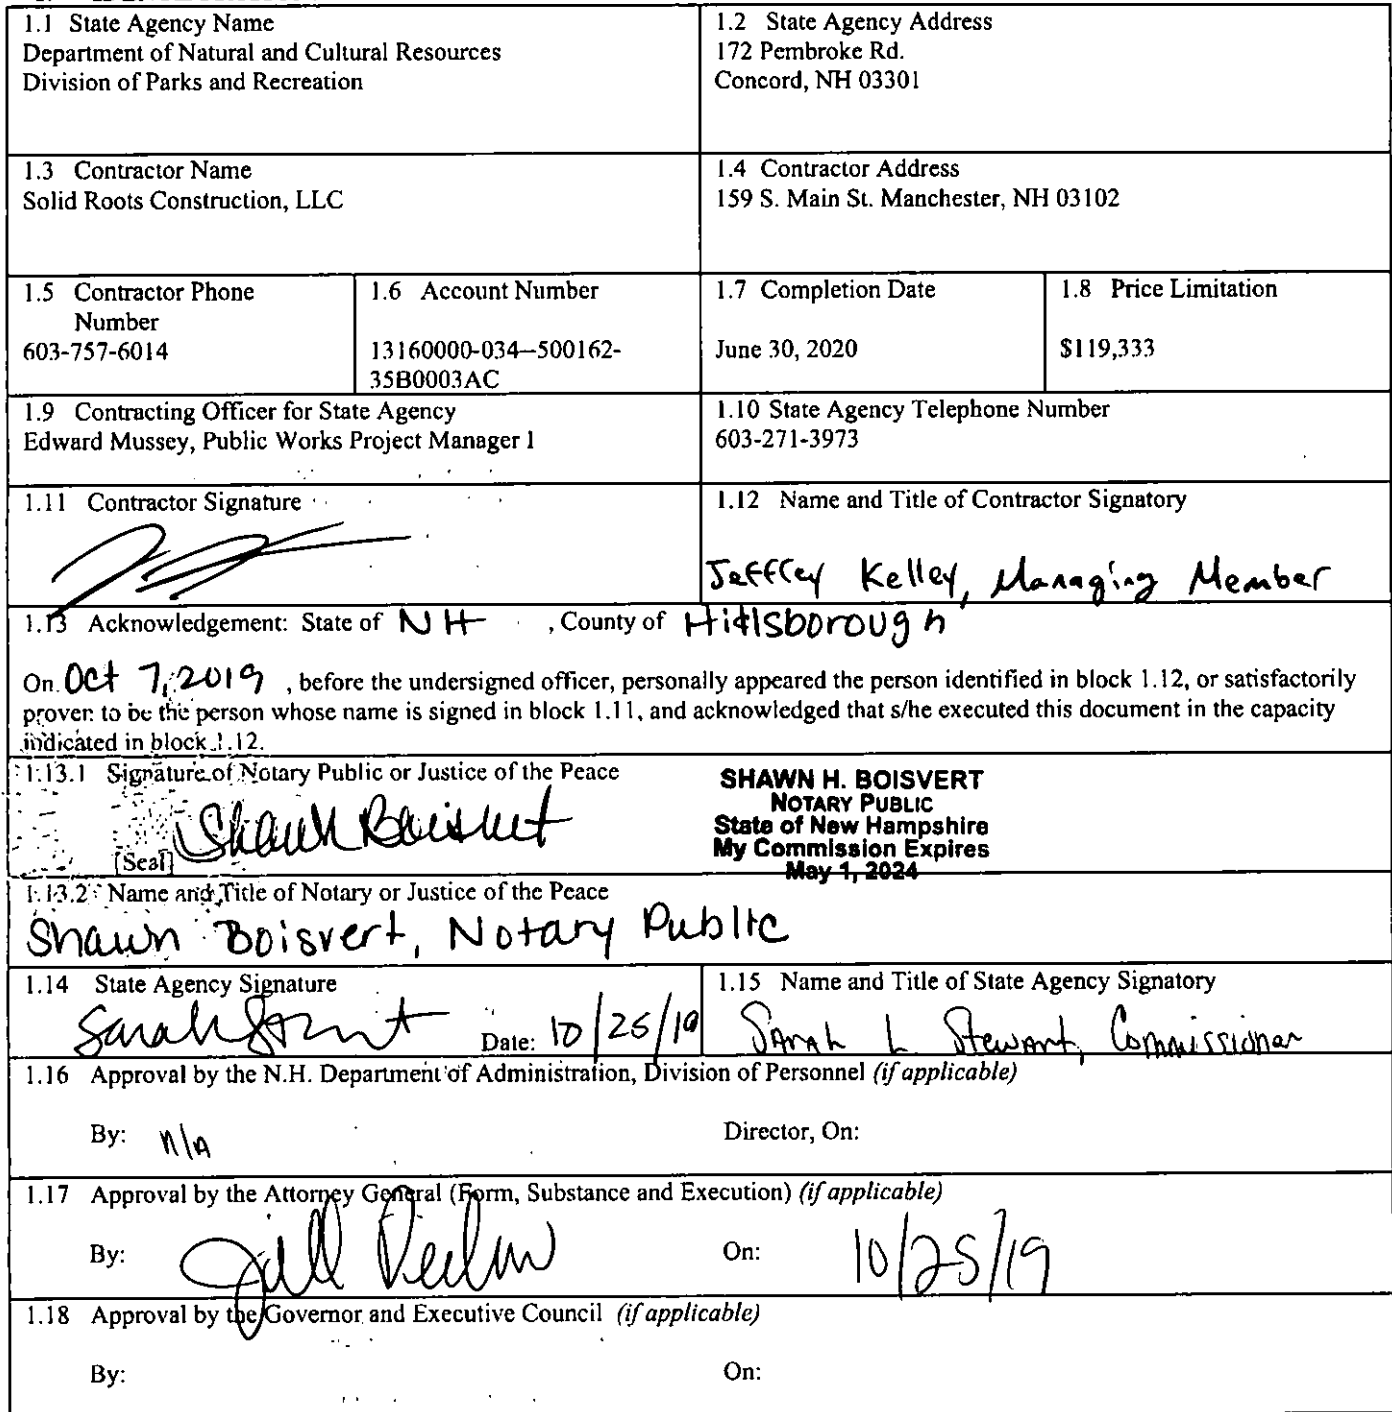 1.1 State Agency Name
Department of Natural and Cultural Resources
Division of Parks and Recreation
1.2 State Agency Address
172 Pembroke Rd.
Concord, NH 03301
1.3 Contractor Name
Solid Roots Construction, LLC
1.4 Contractor Address
159 S. Main St. Manchester, NH 03102
1.5 Contractor Phone
Number
603-757-6014
1.6 Account Number
13160000-034--500162-
35B0003AC
1.7 Completion Date
June 30, 2020
1.8 Price Limitation
$119,333
1.9 Contracting Officer for State Agency
Edward Mussey, Public Works Project Manager 1
1.10 State Agency Telephone Number
603-271-3973
1.11 Contractor Signature
1.12 Name and Title of Contractor Signatory
Jeffrey Kelley, Managing Member
1.13 Acknowledgement: State of NH , County of Hillsborough
On Oct 7, 2019 , before the undersigned officer, personally appeared the person identified in block 1.12, or satisfactorily
proven to be the person whose name is signed in block 1.11, and acknowledged that s/he executed this document in the capacity
indicated in block 1.12.
1.13.1 Signature of Notary Public or Justice of the Peace
Shawn Boisvert
[Seal]
SHAWN H. BOISVERT
NOTARY PUBLIC
State of New Hampshire
My Commission Expires
May 1, 2024
1.13.2 Name and Title of Notary or Justice of the Peace
Shawn Boisvert, Notary Public
1.14 State Agency Signature
Date: 10/25/19
1.15 Name and Title of State Agency Signatory
Sarah L Stewart, Commissioner
1.16 Approval by the N.H. Department of Administration, Division of Personnel (if applicable)
By: n/a
Director, On:
1.17 Approval by the Attorney General (Form, Substance and Execution) (if applicable)
By: Jill
On: 10/25/19
1.18 Approval by the Governor and Executive Council (if applicable)
By:
On: